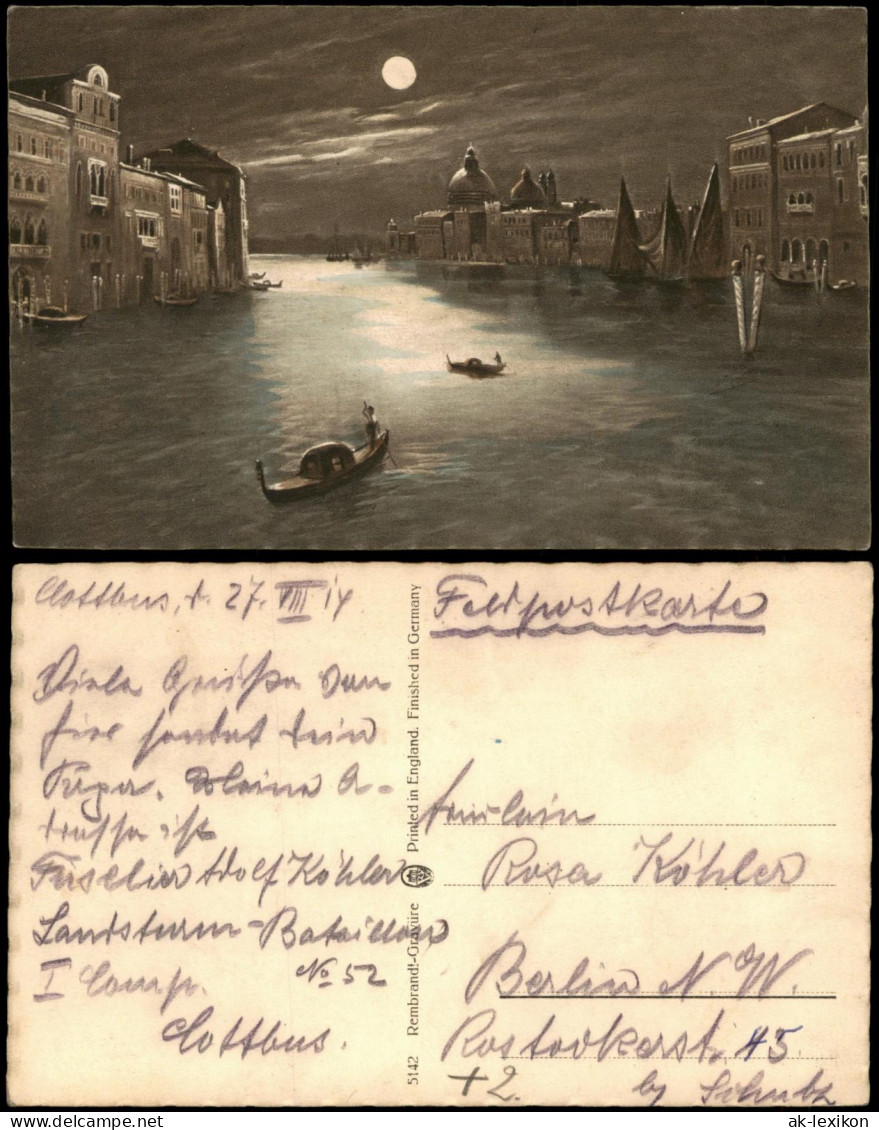 Cottbus, d. 27. VIII 14
Viele Grüße von
hier sendet Dein
Meine A-
dresse ist
Füselier Adolf Köhler
Landsturm-Bataillon
I Comp. No 52
Cottbus.
5142 Rembrandt-Gravüre Printed in England. Finished in Germany
Feldpostkarte
Fräulein
Rosa Köhler
Berlin N. W.
Rostockerstr. 45
+2. by Schulz
ak-lexikon